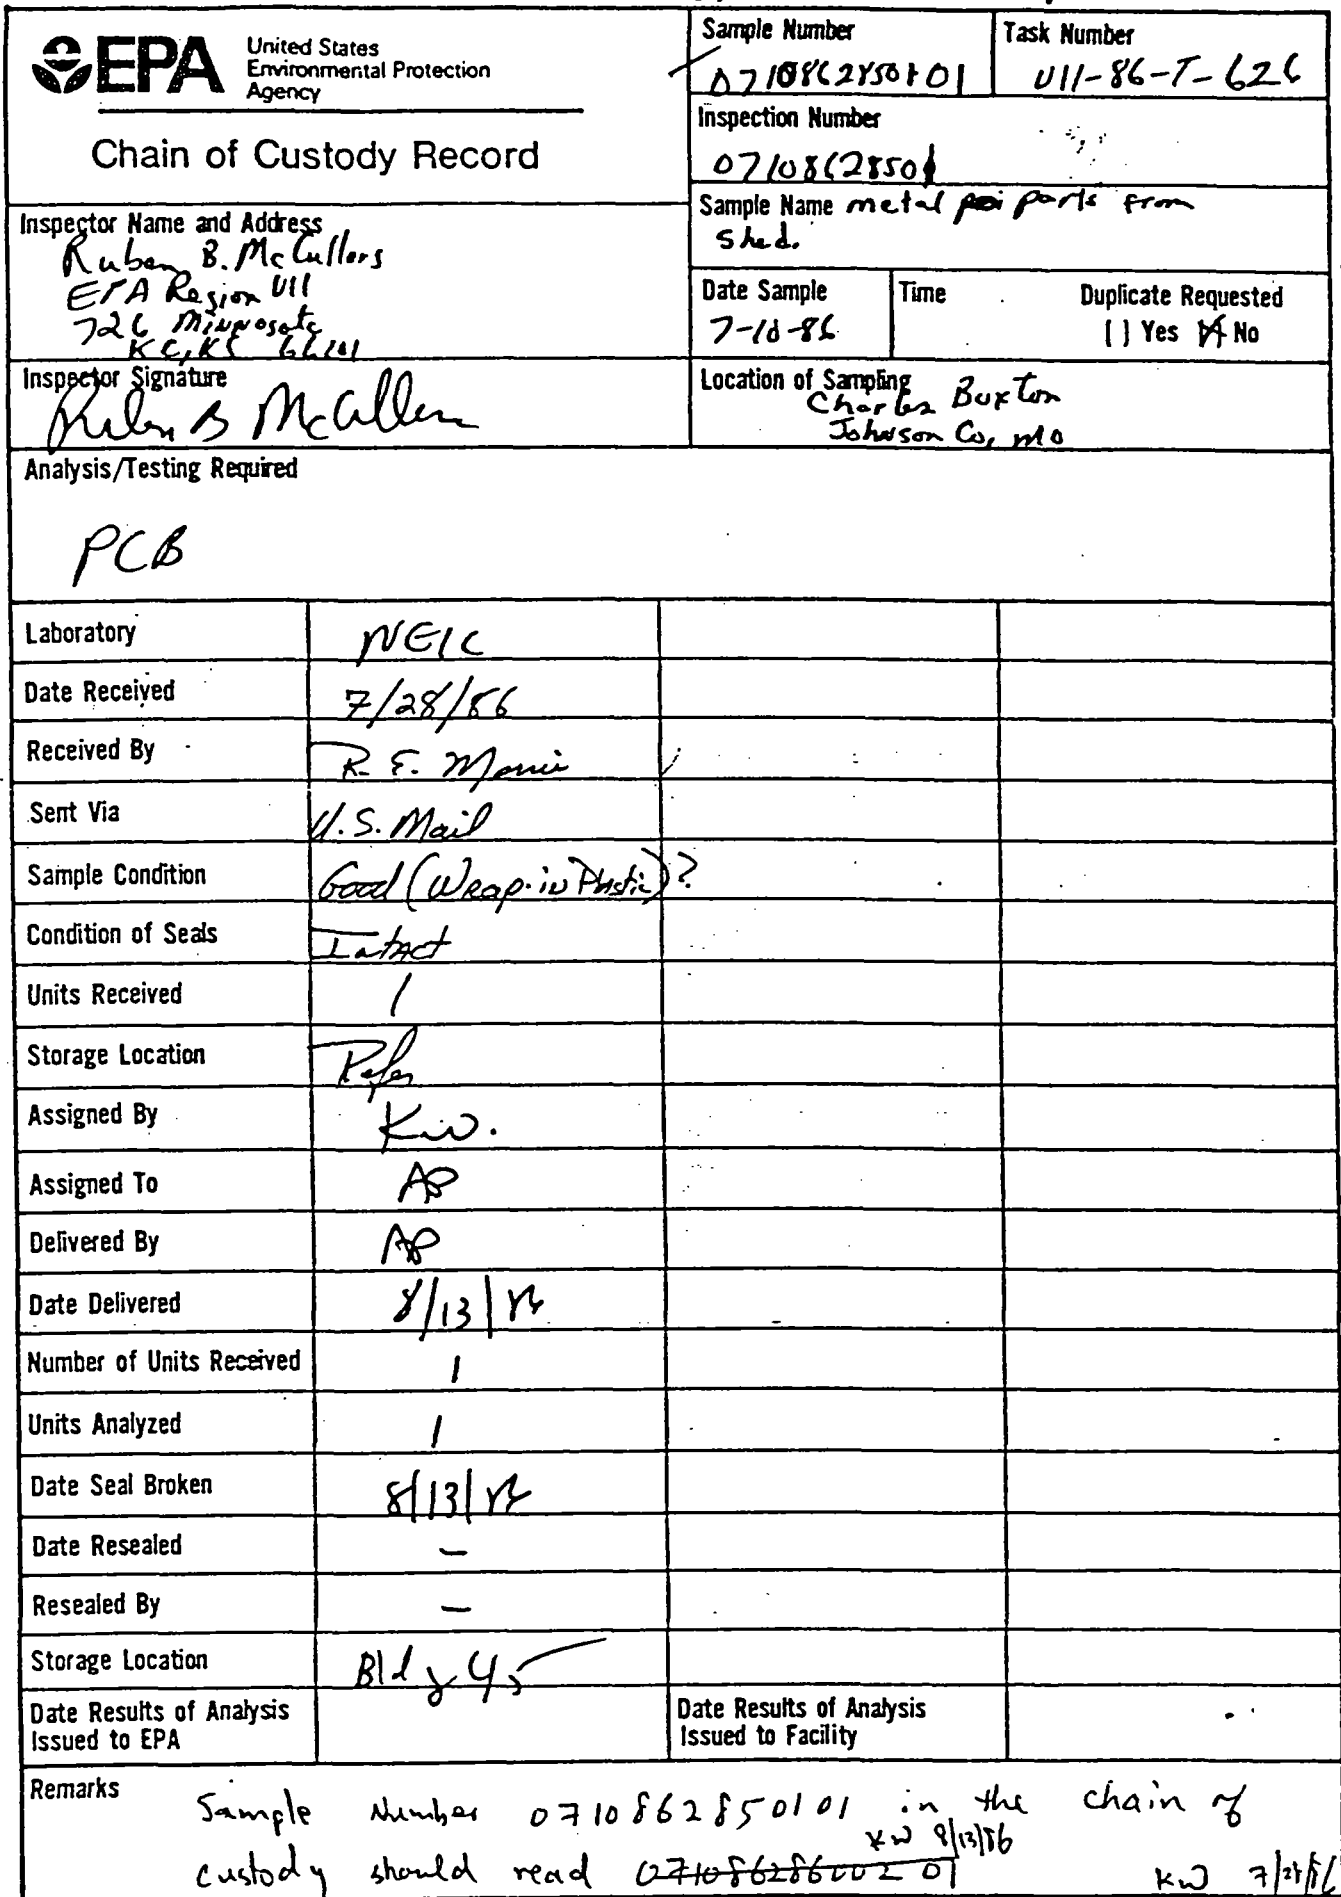 EPA
United States
Environmental Protection
Agency
Chain of Custody Record
Sample Number
0710862850101
Task Number
VII-86-T-626
Inspection Number
07108628501
Sample Name metal parts from
Shed.
Inspector Name and Address
Ruben B. McCullers
EPA Region VII
726 Minnesota
KC, KS 66101
Date Sample
7-10-86
Time
Duplicate Requested
[ ] Yes [X] No
Inspector Signature
Ruben B McCullers
Location of Sampling
Charles Buxton
Johnson Co, MO
Analysis/Testing Required
PCB
Laboratory NEIC
Date Received 7/28/86
Received By R. E.
Sent Via U.S. Mail
Sample Condition Good (Wrap. in Plastic)?
Condition of Seals Intact
Units Received 1
Storage Location
Assigned By KW.
Assigned To AP
Delivered By AP
Date Delivered 8/13/86
Number of Units Received 1
Units Analyzed 1
Date Seal Broken 8/13/86
Date Resealed –
Resealed By –
Storage Location Bldg 45
Date Results of Analysis
Issued to EPA
Date Results of Analysis
Issued to Facility
Remarks
Sample Number 0710862850101 in the chain of
KW 8/13/86
custody should read 071086286002 01 KW